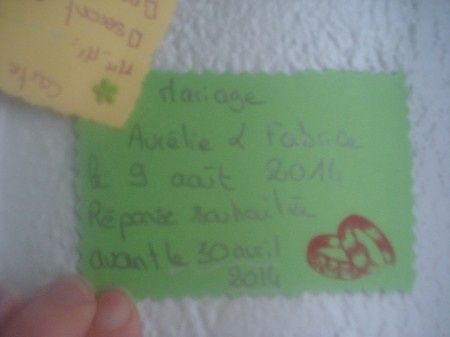 Mariage
Aurélie & Fabrice
le 9 août 2014
Réponse souhaitée
avant le 30 avril
2014
Carte